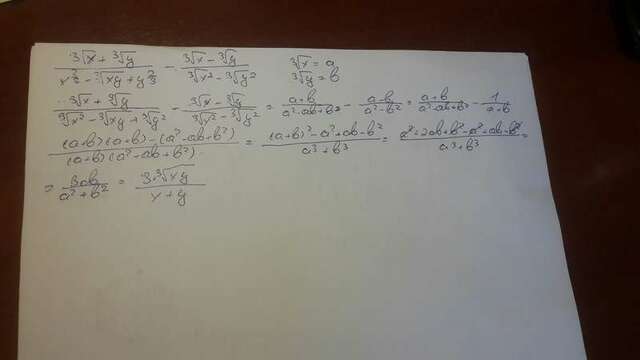 (∛x + ∛y)/(x^(2/3) - ∛(xy) + y^(2/3)) - (∛x - ∛y)/(∛x² - ∛y²)   ∛x = a
∛y = b
(∛x + ∛y)/(∛x² - ∛xy + ∛y²) - (∛x - ∛y)/(∛x² - ∛y²) = (a+b)/(a²-ab+b²) - (a-b)/(a²-b²) = (a+b)/(a²-ab+b²) - 1/(a+b)
((a+b)(a+b) - (a²-ab+b²))/((a+b)(a²-ab+b²)) = ((a+b)² - a²+ab-b²)/(a³+b³) = (a²+2ab+b²-a²+ab-b²)/(a³+b³) =
= 3ab/(a²+b²) = 3·∛xy/(x+y)